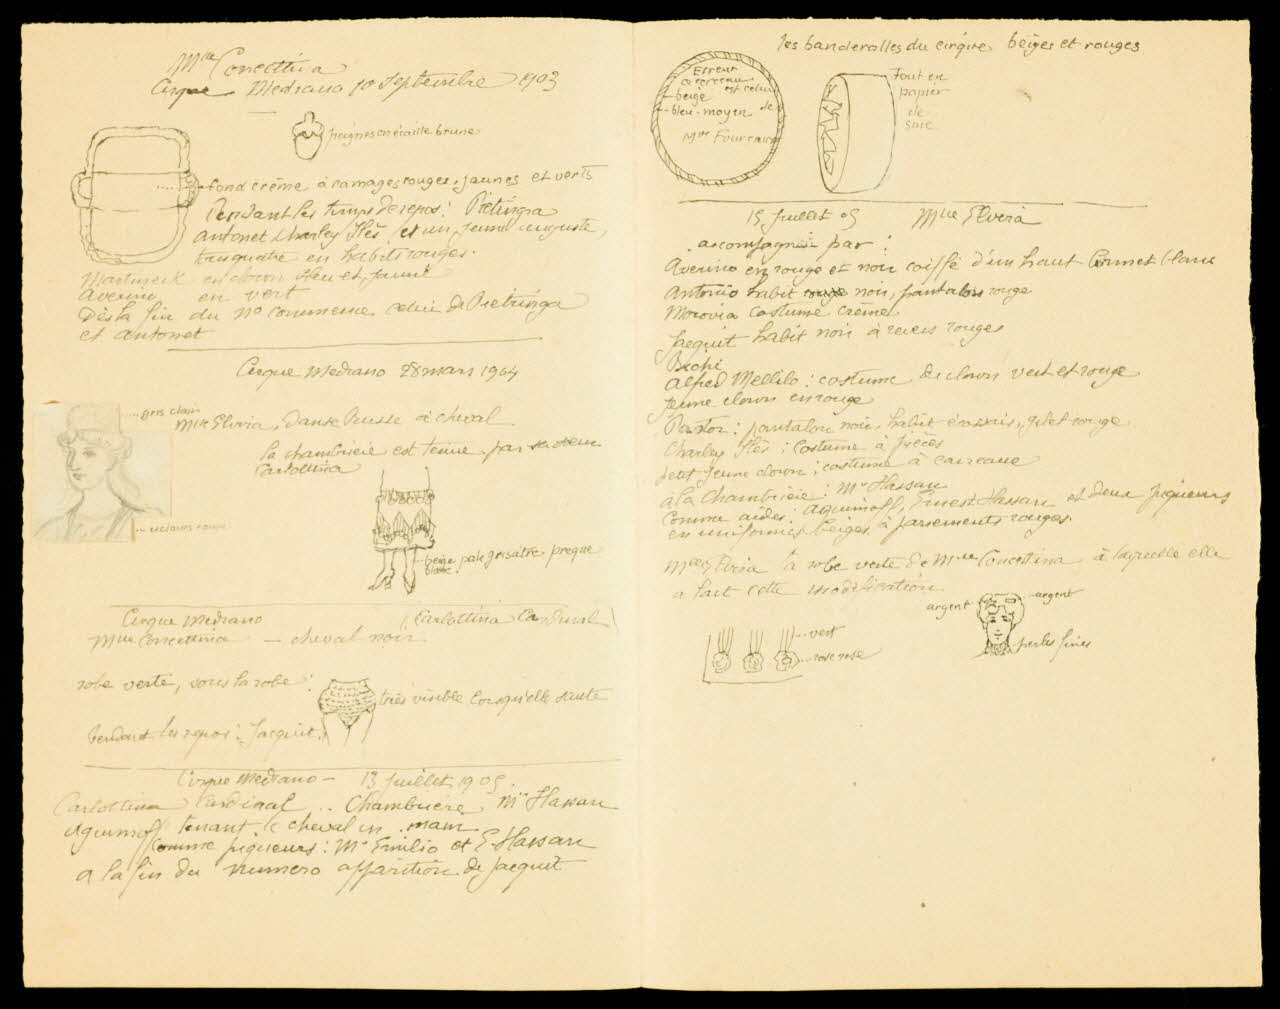 Mlle Concettina
Cirque Medrano 10 Septembre 1903
peignes en écaille brune
fond crême à ramages rouges, jaunes et verts
Pendant les temps de repos: Pietringa
Antonet Charley Ilès, et un jeune auguste,
tous quatre en habits rouges.
Martineck en clown bleu et jaune
Averino en vert
Dès la fin du No commence celui de Pietringa
et Antonet
Cirque Medrano 28 mars 1904
gris clair
Mlle Elvria, danse Russe à cheval
la chambriere est tenue par sa sœur
Carlottina
velours rouge
beige pale grisâtre presque
blanc
Cirque Medrano (Carlottina Cardinal)
Mlle Concettina — cheval noir
robe verte, sous la robe:
très visible lorsqu'elle saute
Pendant les repos: Jacquit.
Cirque Medrano — 13 Juillet 1905.
Carlottina Cardinal .. Chambriere, Mr Hassan
Aguimoff tenant le cheval en main
Comme piqueurs: Mr Emilio et E. Hassan
a la fin du numero apparition de Jacquit
les banderolles du cirque beiges et rouges
Erreur
ce cerceau est celui
beige
bleu-moyen de
Mlle Fourcaire
Tout en
papier
de
soie
15 Juillet 05 Mlle Elvira
accompagnée par:
Averino en rouge et noir coiffé d'un haut bonnet blanc
Antonio habit rouge noir, pantalon rouge
Morovia costume crême
Jacquit habit noir à revers rouges
Bichi
Alfred Mellilo: costume de clown vert et rouge
Jeune clown en rouge
Pastor: pantalon noir, habit, gilet rouge
Charley Ilès: costume à pièces
petit jeune clown: costume à carreaux
à la chambriere: Mr Hassan
Comme aides: Aguimoff, Ernest Hassan et deux piqueurs
en uniformes beiges à parements rouges.
Mlle Elvria a la robe verte de Mlle Concettina à laquelle elle
a fait cette modification
argent
argent
perles fines
vert
rose rose